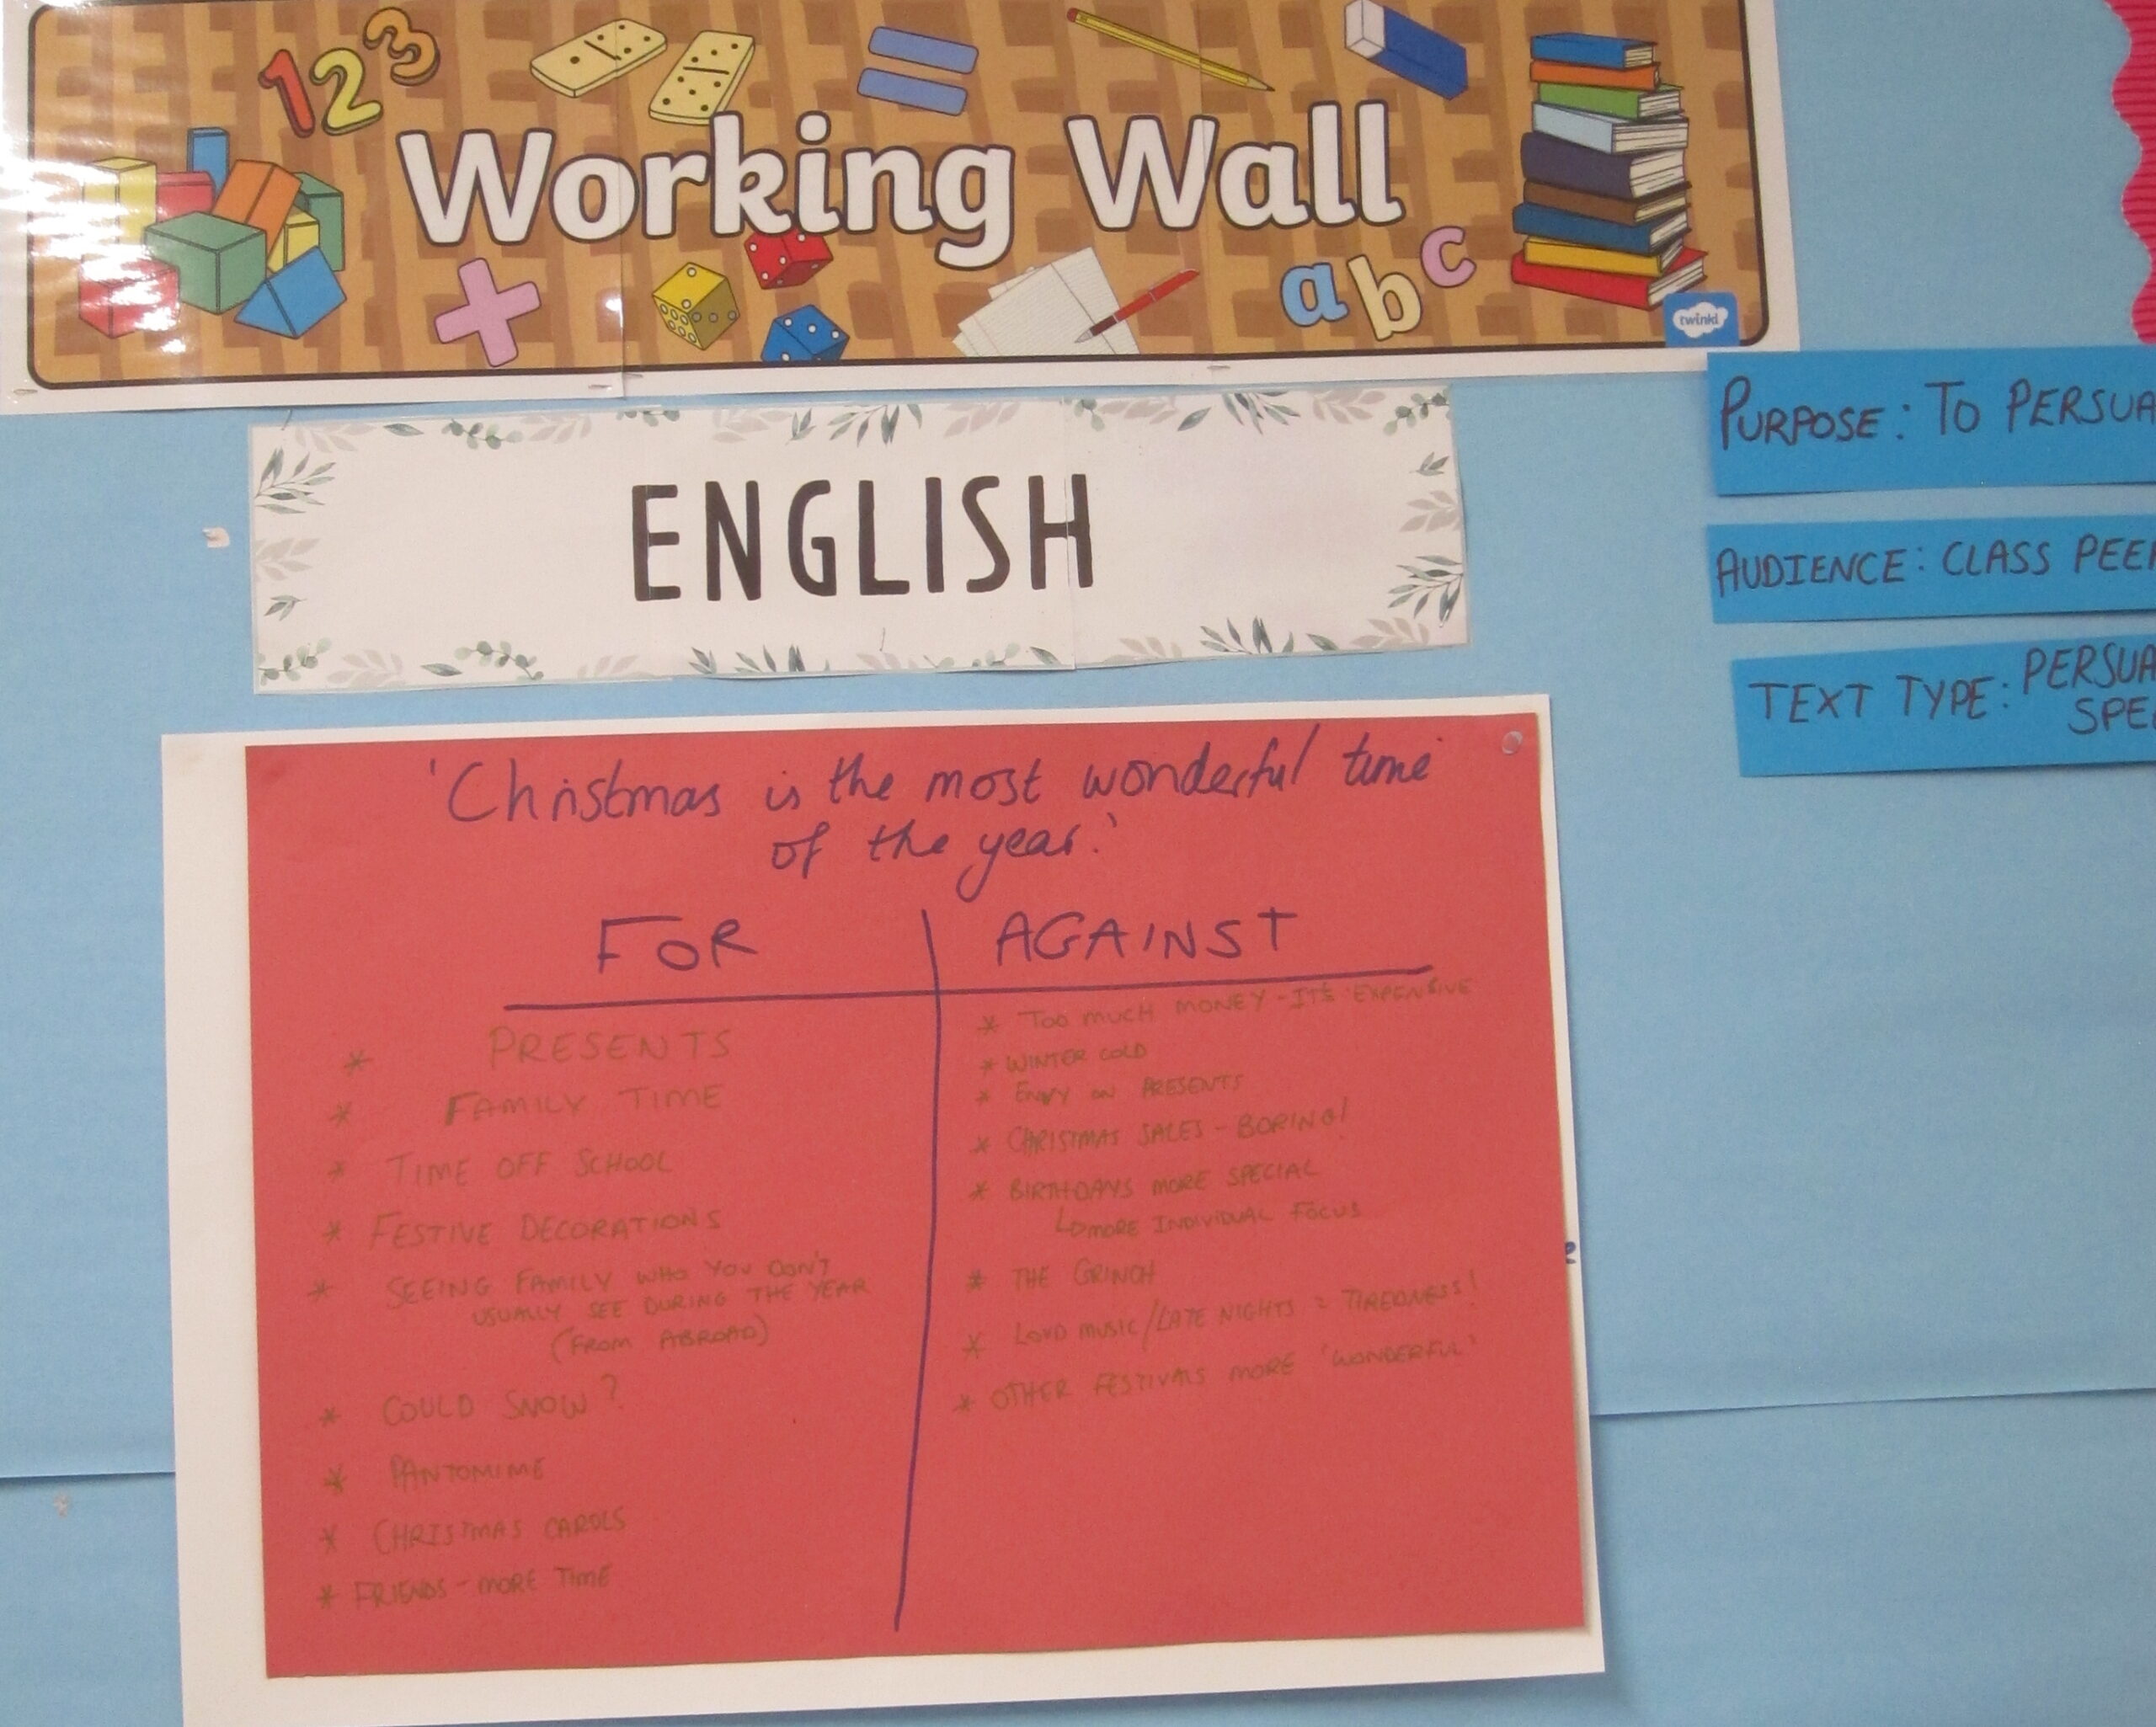 1 2 3
Working Wall
a b c
twinkl
ENGLISH
PURPOSE: TO PERSUA
AUDIENCE: CLASS PEE
TEXT TYPE: PERSUA
SPE
'Christmas is the most wonderful time
of the year.'
FOR
AGAINST
* PRESENTS
* FAMILY TIME
* TIME OFF SCHOOL
* FESTIVE DECORATIONS
* SEEING FAMILY WHO YOU DON'T
USUALLY SEE DURING THE YEAR
(FROM ABROAD)
* COULD SNOW?
* PANTOMIME
* CHRISTMAS CAROLS
* FRIENDS - MORE TIME
* TOO MUCH MONEY - IT'S EXPENSIVE
* WINTER COLD
* ENVY ON PRESENTS
* CHRISTMAS SALES - BORING!
* BIRTHDAYS MORE SPECIAL
↳ MORE INDIVIDUAL FOCUS
* THE GRINCH
* LOUD MUSIC/LATE NIGHTS = TIREDNESS!
* OTHER FESTIVALS MORE 'WONDERFUL'